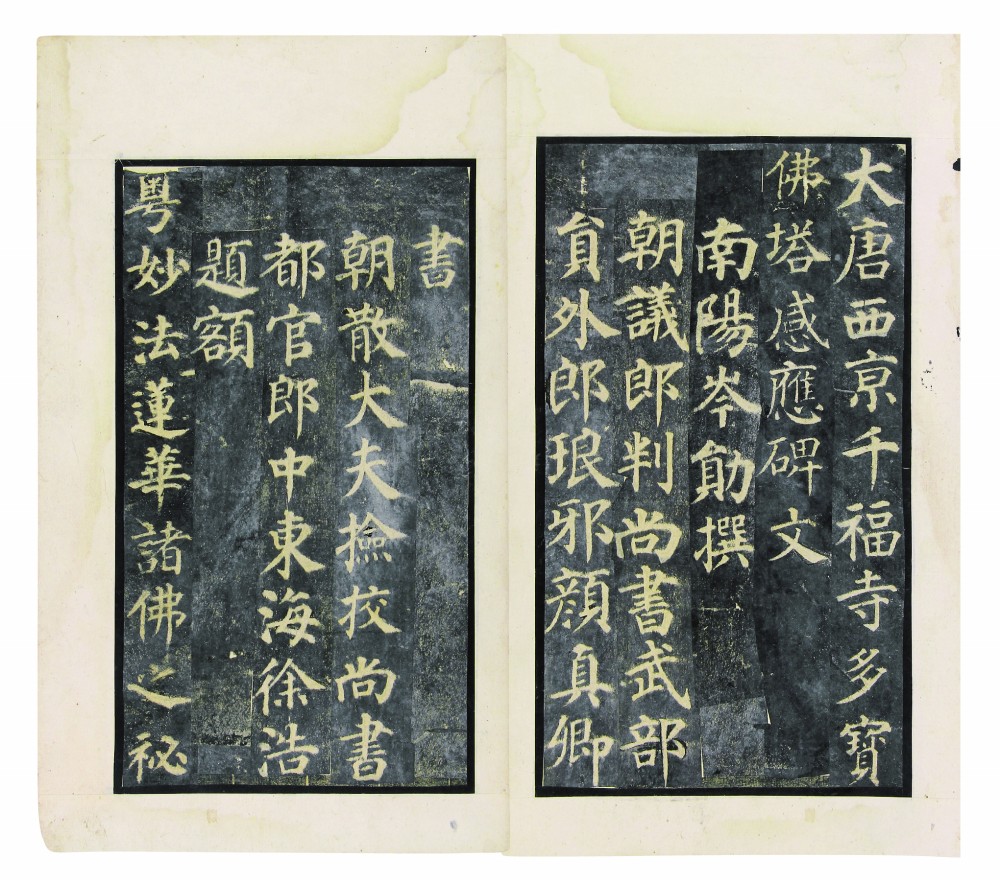 大唐西京千福寺多寶
佛塔感應碑文
南陽岑勛撰
朝議郎判尚書武部
員外郎琅邪顏真卿
書
朝散大夫撿挍尚書
都官郎中東海徐浩
題額
粵妙法蓮華諸佛之祕